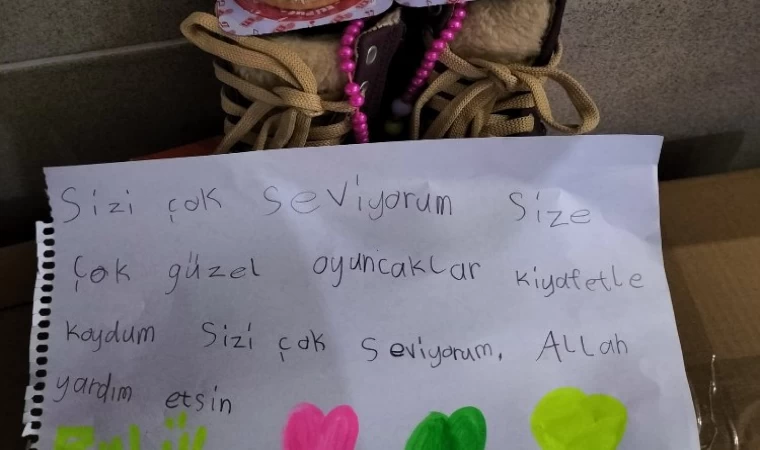 Sizi çok seviyorum Size
çok güzel oyuncaklar kiyafetle
koydum Sizi çok seviyorum. Allah
yardım etsin